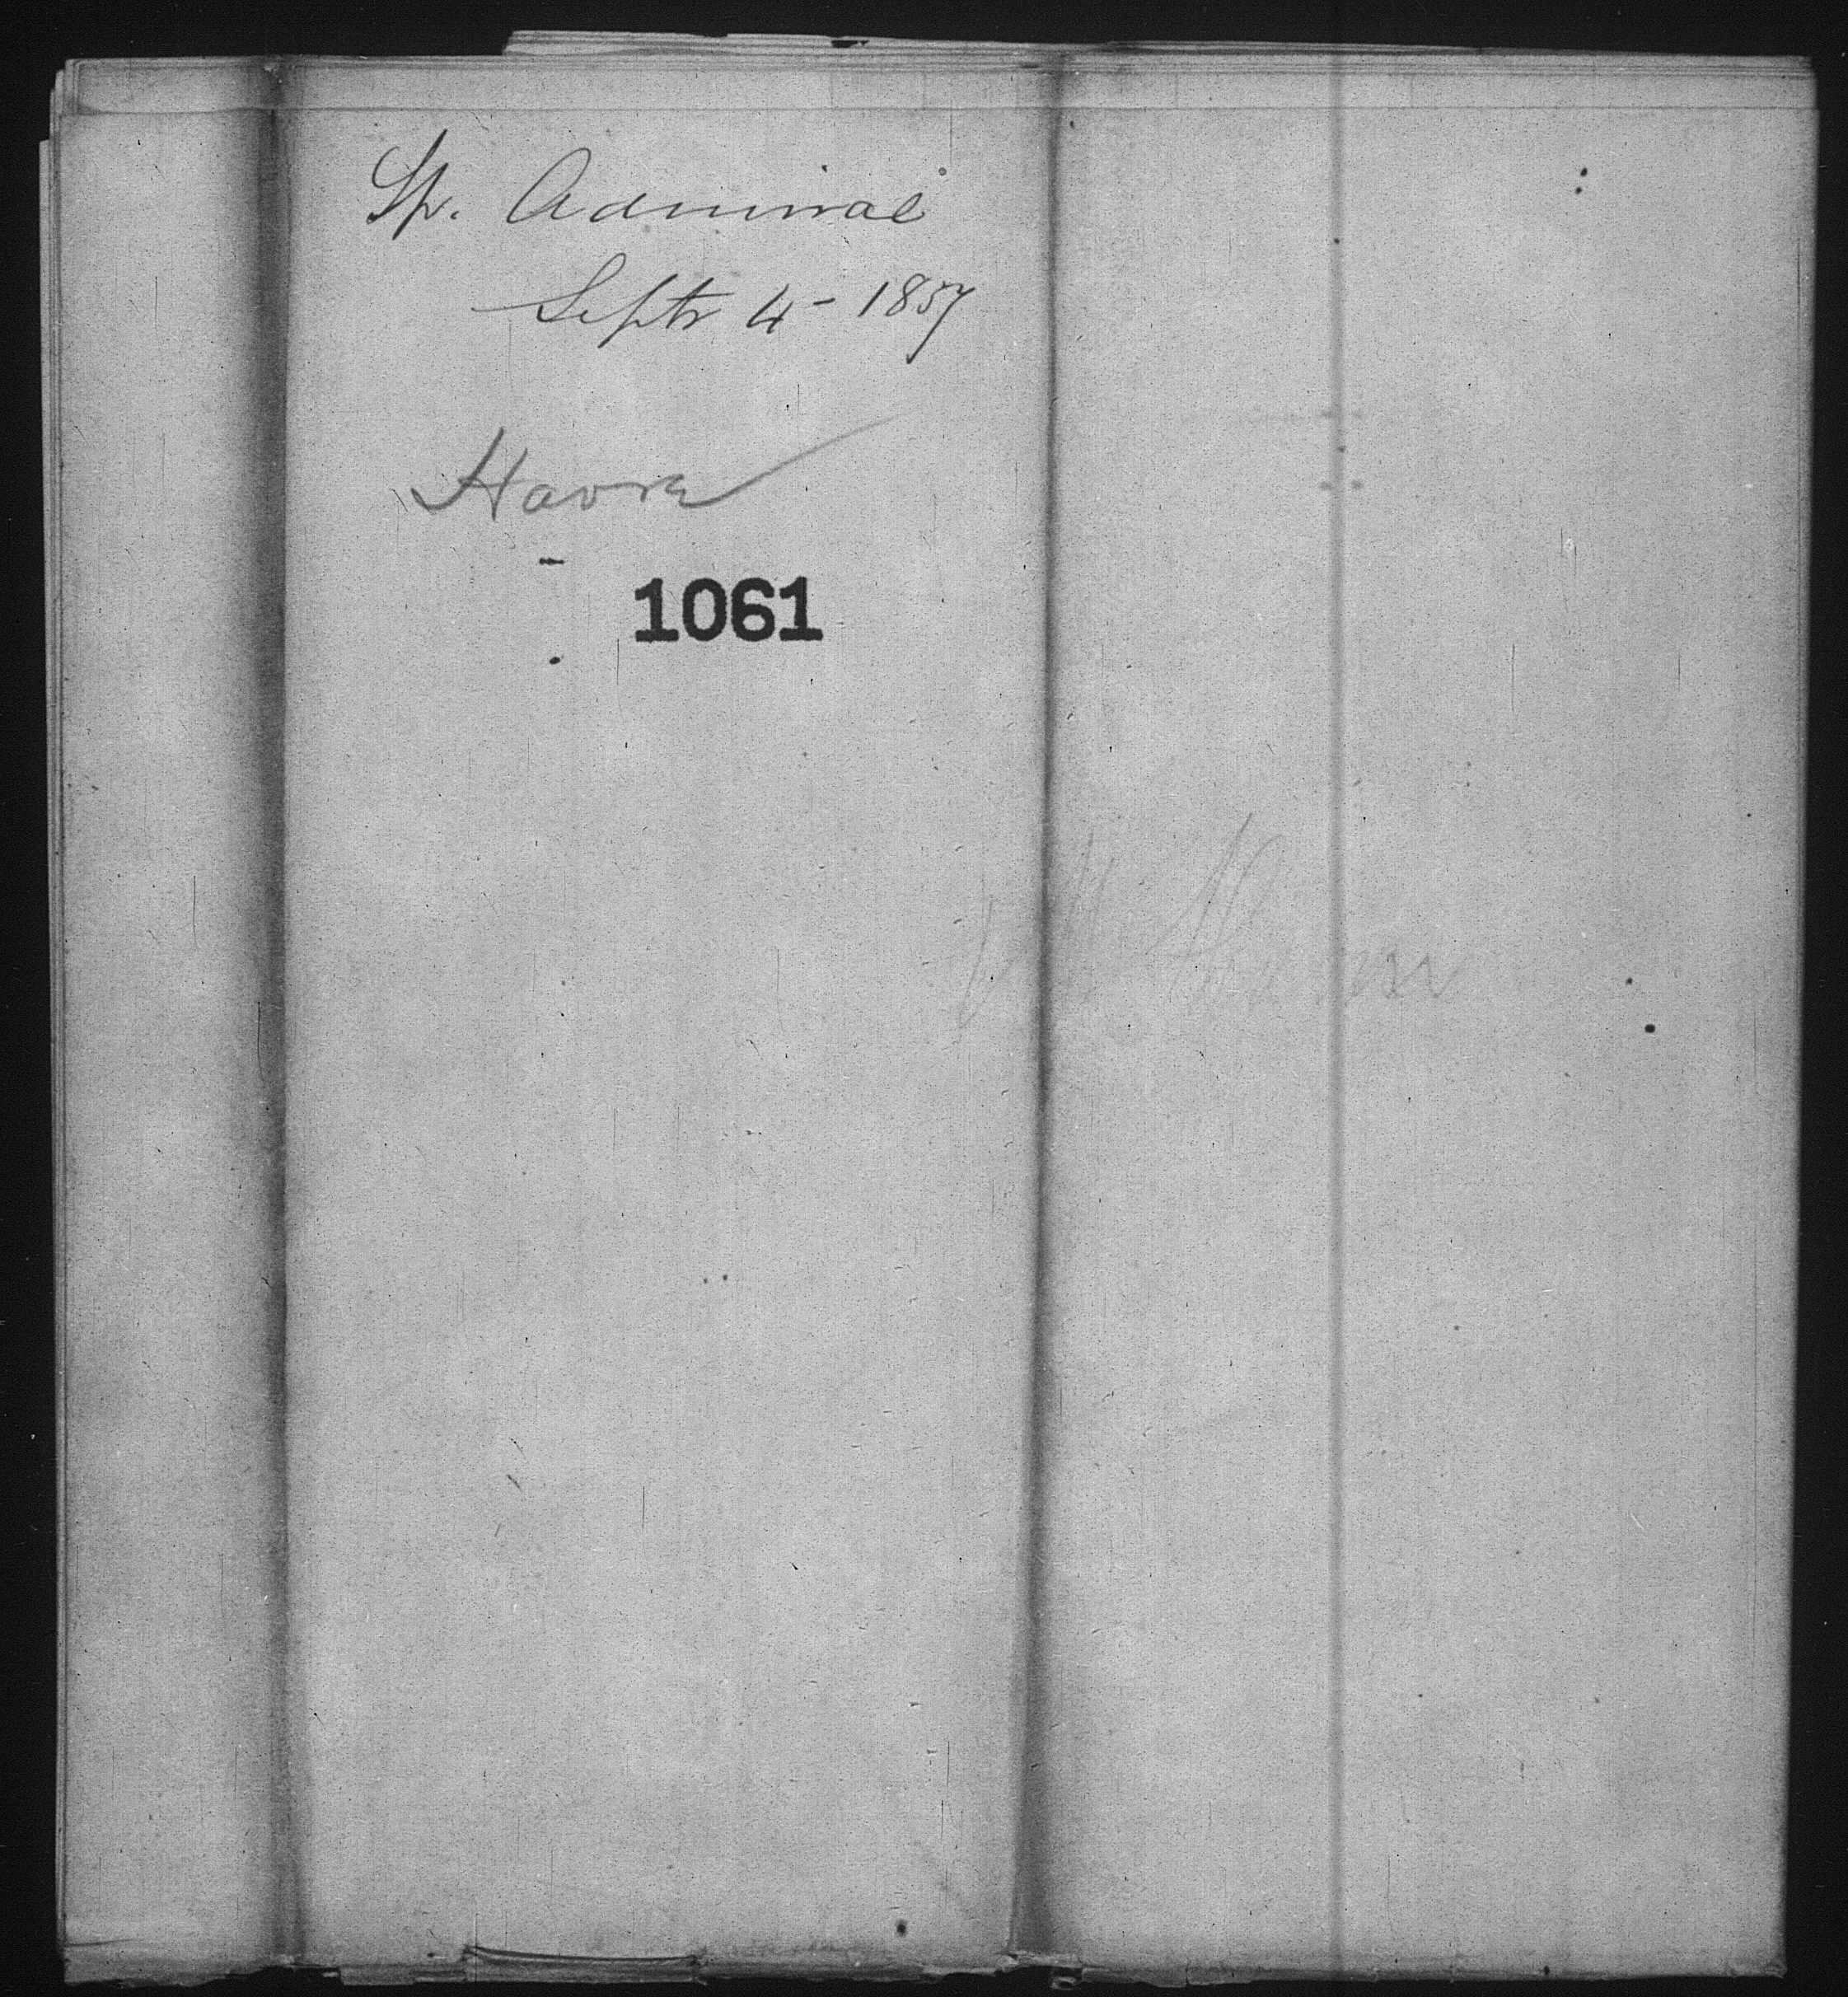 Sp. Admiral
Septr 4 - 1857
Havre
1061